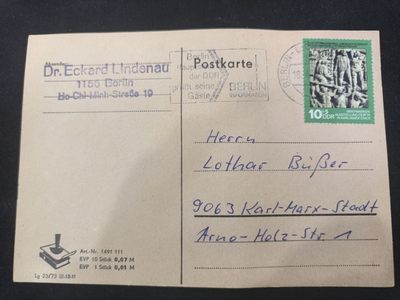 Absender:
Dr. Eckard Lindenau
1156 Berlin
Ho-Chi-Minh-Straße 19
Postkarte
Berlin
der DDR
grüßt seine
Gäste
BERLIN
INFORMATION
BERLIN
10+5
DDR
Herrn
Lothar Büßer
9063 Karl-Marx-Stadt
Arno-Holz-Str. 1
Art.-Nr. 1491 111
EVP 10 Stück 0,07 M
EVP 1 Stück 0,01 M
Lg 73/73 III-18-11